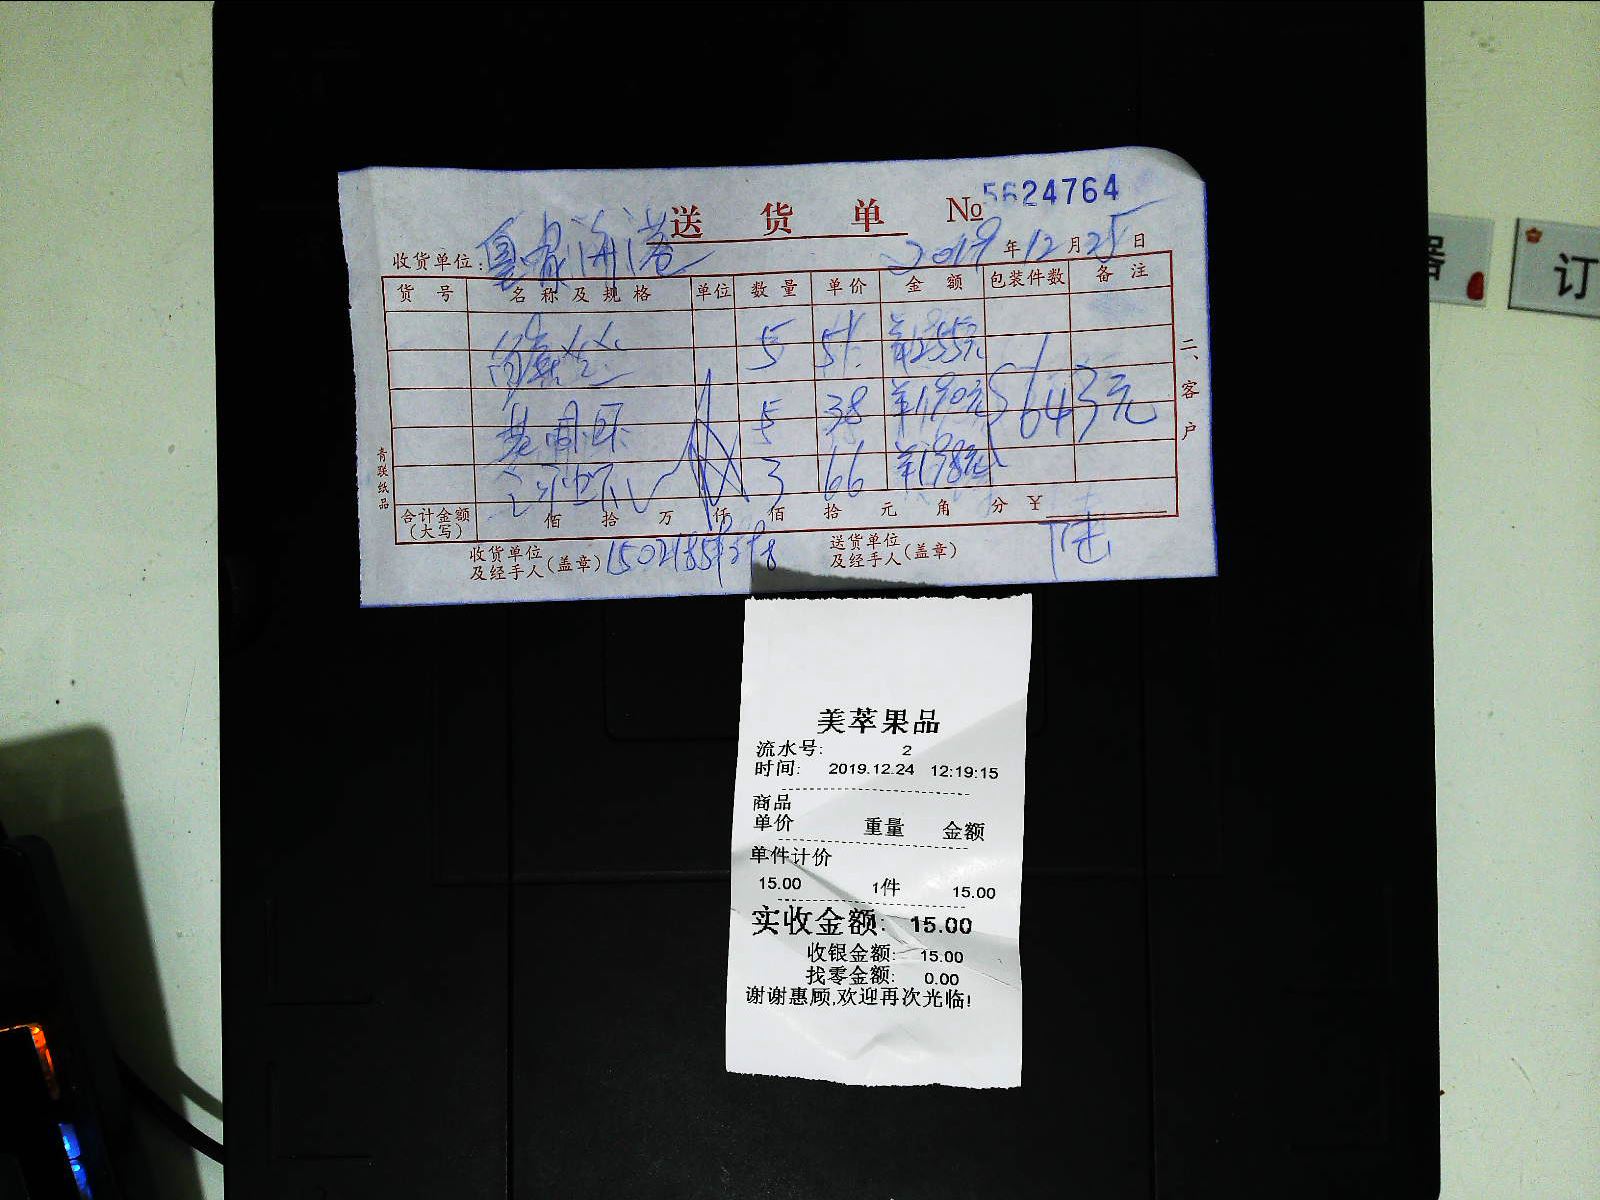 送 货 单 №5624764
收货单位: 2019年12月25日
货 号 名 称 及 规 格 单位 数 量 单价 金 额 包装件数 备 注
5 51 ¥255元
5 38 ¥190元 643元
3 66 ¥198元
合计金额(大写) 佰 拾 万 仟 佰 拾 元 角 分 ¥
收货单位及经手人(盖章) 送货单位及经手人(盖章) 陆
二、客户
青联纸品
器
订
美萃果品
流水号: 2
时间: 2019.12.24 12:19:15
商品
单价 重量 金额
单件计价
15.00 1件 15.00
实收金额: 15.00
收银金额: 15.00
找零金额: 0.00
谢谢惠顾,欢迎再次光临!